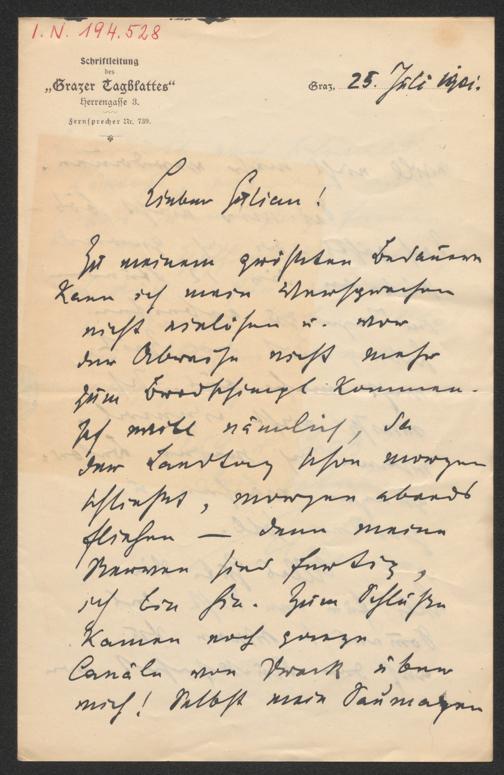 I. N. 194.528
Schriftleitung
des
„Grazer Tagblattes“
Herrengasse 3.
Fernsprecher Nr. 739.
Graz, 25. Juli 1901.
Lieber Julian!
Zu meinem größten Bedauern
kann ich mein Versprechen
nicht einlösen u. vor
der Abreise nicht mehr
zum kommen.
Ich will nämlich, da
der Landtag schon morgen
schließt, morgen abends
fliehen — denn meine
Nerven sind fertig,
ich bin hin. Zum Schluße
kamen noch ganze
Canäle von Dreck über
mich! Selbst mein Saumagen